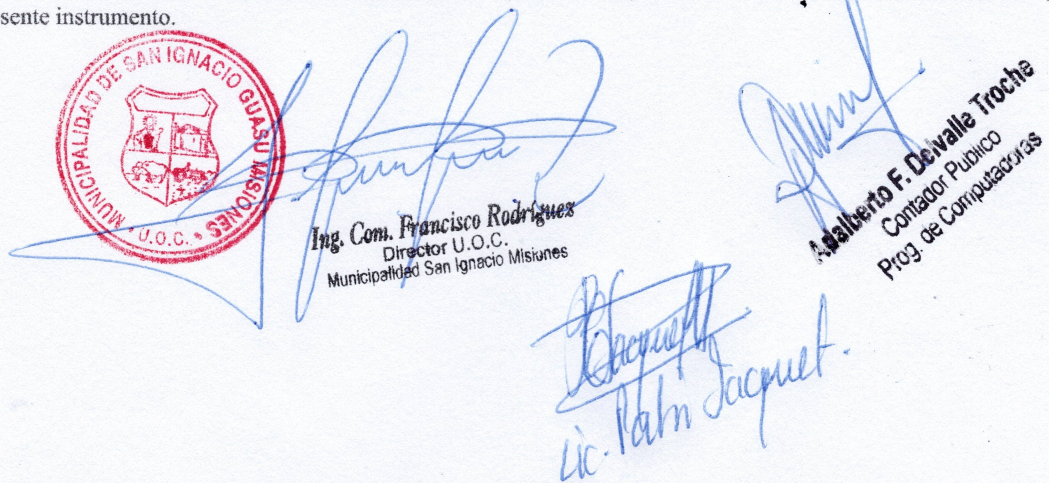 sente instrumento.
MUNICIPALIDAD DE SAN IGNACIO GUASU MISIONES
U.O.C.
Ing. Com. Francisco Rodríguez
Director U.O.C.
Municipalidad San Ignacio Misiones
Adalberto F. Delvalle Troche
Contador Público
Prog. de Computadoras
Lic. Jacquet.